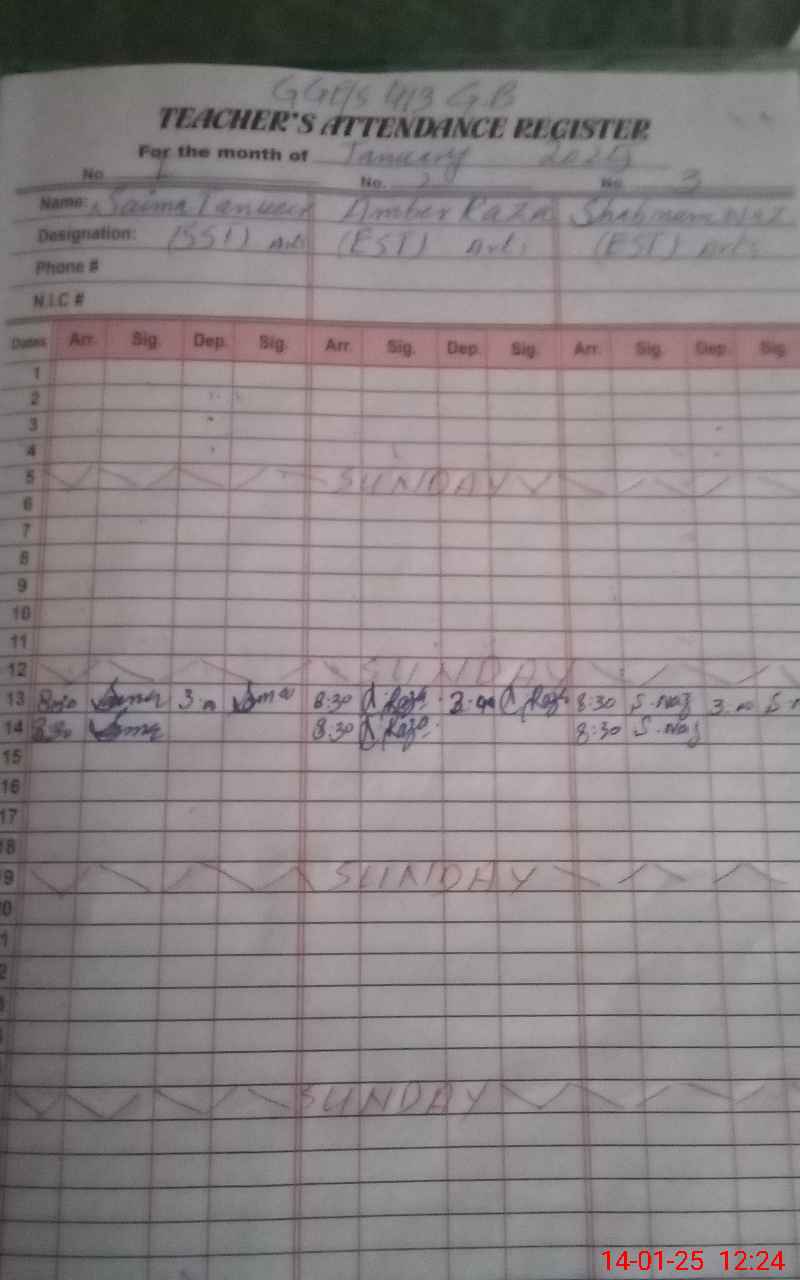 GGE/S 413 G.B
TEACHER'S ATTENDANCE REGISTER
For the month of January 2025
No 1 No. 2 No 3
Name: Saima Tanveer Amber Raza Shabnam Naz
Designation: (SST) Arts (EST) Arts (EST) Arts
Phone #
N.I.C #
Dates Arr. Sig. Dep. Sig. Arr. Sig. Dep. Sig. Arr. Sig. Dep. Sig.
1
2
3
4
5 SUNDAY
6
7
8
9
10
11
12 SUNDAY
13 8:30 Saima 3:00 Saima 8:30 A.Raza 3:00 A.Raza 8:30 S.Naz 3:00 S.N
14 8:30 Saima 8:30 A.Raza 8:30 S.Naz
15
16
17
18
9 SUNDAY
0
1
2
SUNDAY
14-01-25 12:24